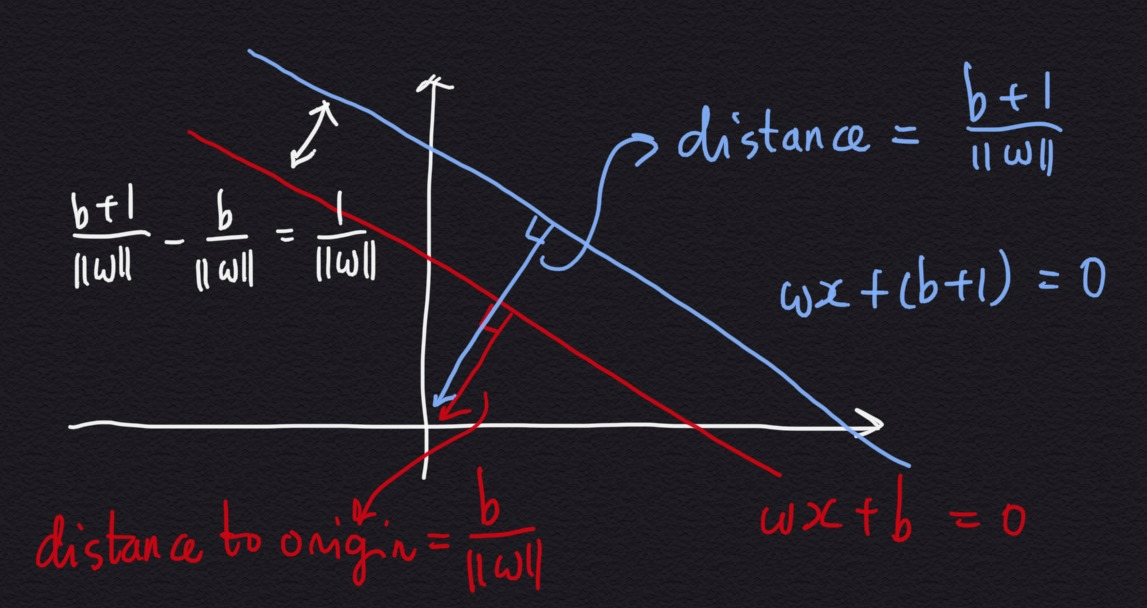 distance = b + 1 / ||w||
b + 1 / ||w|| - b / ||w|| = 1 / ||w||
wx + (b+1) = 0
distance to origin = b / ||w||
wx + b = 0